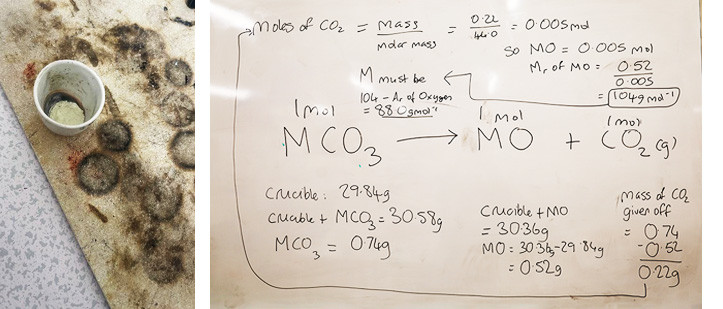 Moles of CO2 = Mass / molar mass = 0.22 / 44.0 = 0.005mol
so MO = 0.005 mol
Mr of MO = 0.52 / 0.005
= 104gmol⁻¹
M must be
104 - Ar of Oxygen
= 88.0gmol⁻¹
1mol 1 mol 1mol
MCO3 → MO + CO2 (g)
Crucible: 29.84g
Crucible + MCO3 = 30.58g
MCO3 = 0.74g
Crucible + MO
= 30.36g
MO = 30.36g - 29.84g
= 0.52g
Mass of CO2
given off
= 0.74
- 0.52
0.22g